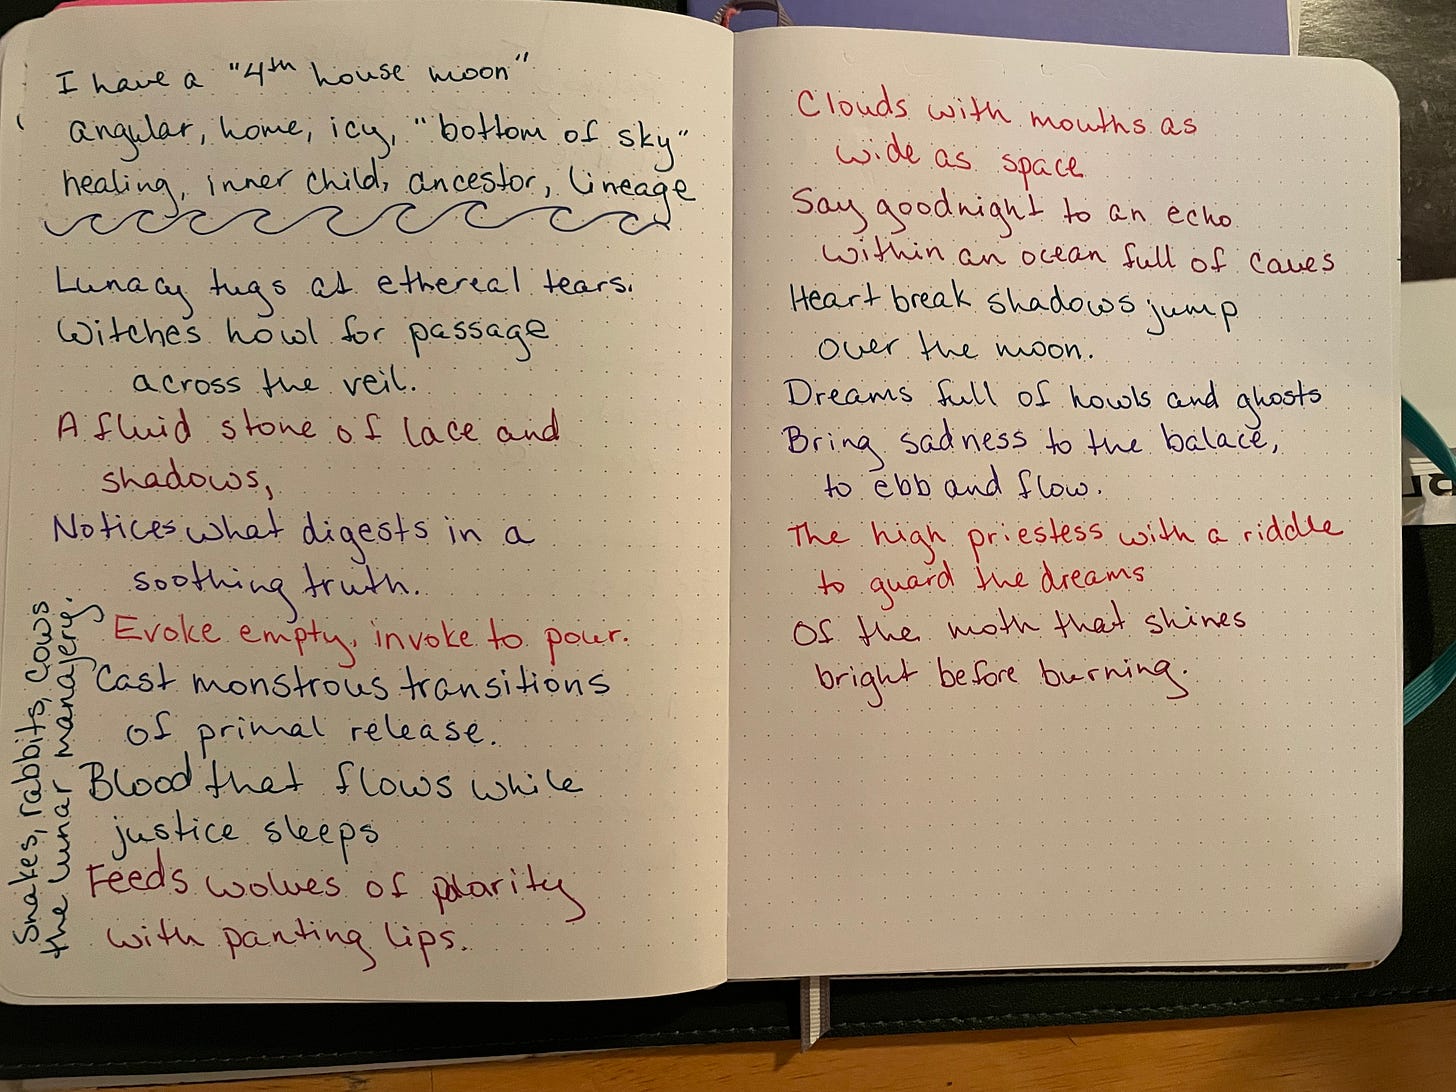 I have a "4th house moon"
angular, home, icy, "bottom of sky"
healing, inner child, ancestor, lineage
Lunacy tugs at ethereal tears.
Witches howl for passage
across the veil.
A fluid stone of lace and
shadows,
Notices what digests in a
soothing truth.
Evoke empty, invoke to pour.
Cast monstrous transitions
of primal release.
Blood that flows while
justice sleeps
Feeds wolves of polarity
with panting lips.
Snakes, rabbits, cows
the lunar manajery.
Clouds with mouths as
wide as space
Say goodnight to an echo
within an ocean full of caves
Heartbreak shadows jump
over the moon.
Dreams full of howls and ghosts
Bring sadness to the balace,
to ebb and flow.
The high priestess with a riddle
to guard the dreams
Of the moth that shines
bright before burning.